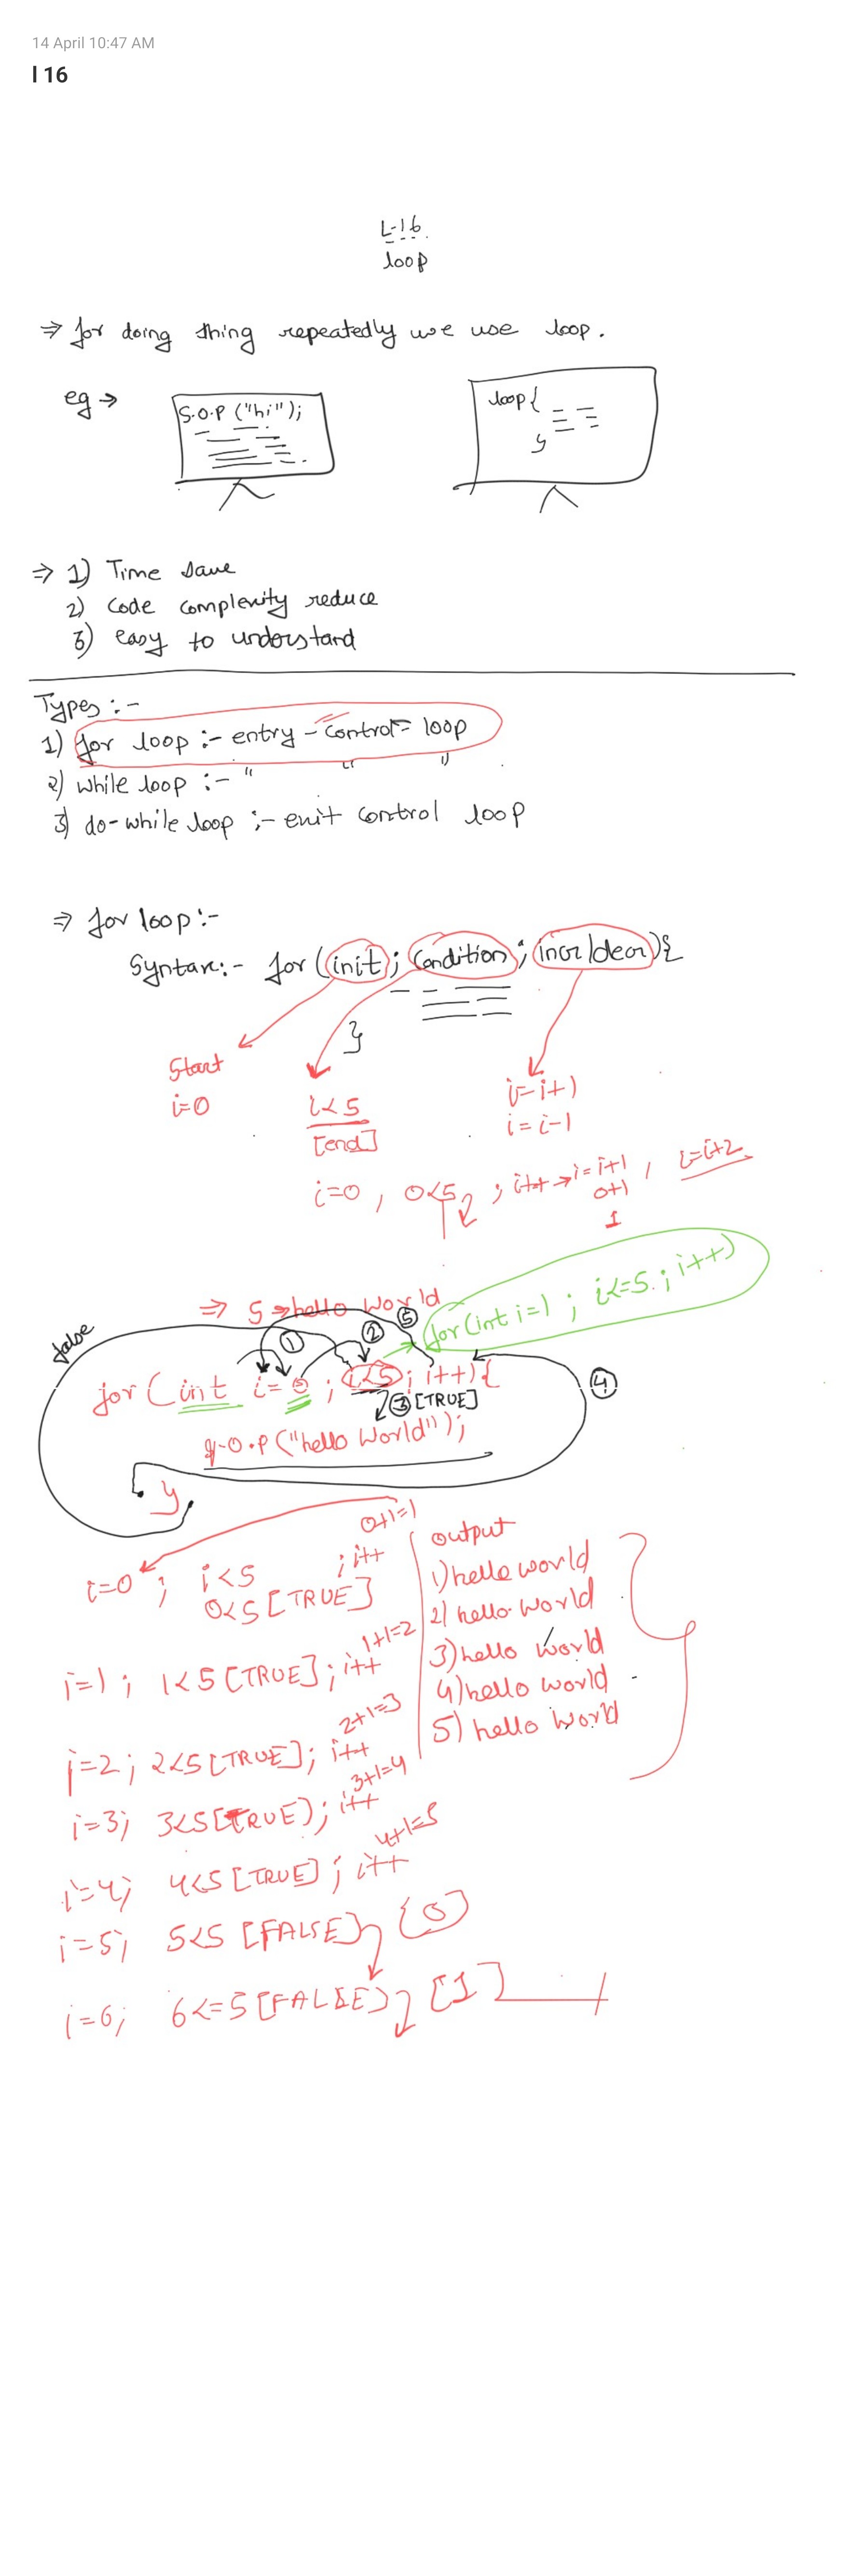 14 April 10:47 AM
l 16
L-16
loop
⇒ for doing thing repeatedly we use loop.
eg →
S.O.P ("hi");
loop{
}
⇒ 1) Time save
2) Code complexity reduce
3) easy to understand
Types :-
1) for loop :- entry - control - loop
2) while loop :- " " "
3) do-while loop :- exit control loop
⇒ for loop :-
Syntax :- for (init ; condition ; incr/decr){
}
Start
i=0
i<5
[end]
i=i+1
i=i-1
i=0 , 0<5 ; i++ → i=i+1 , i=i+2
0+1
1
⇒ 5 → hello world
for(int i=1 ; i<=5 ; i++)
false
① ② ⑤
for (int i=0 ; i<5 ; i++){
③ [TRUE]
④
S.O.P ("hello World");
}
0+1=1
i=0 ; i<5 ; i++
0<5 [TRUE]
1+1=2
i=1 ; 1<5 [TRUE] ; i++
2+1=3
i=2 ; 2<5 [TRUE] ; i++
3+1=4
i=3; 3<5 [TRUE] ; i++
4+1=5
i=4; 4<5 [TRUE] ; i++
i=5; 5<5 [FALSE] {0}
i=6; 6<=5 [FALSE] [1]
output
1) hello world
2) hello world
3) hello world
4) hello world
5) hello world